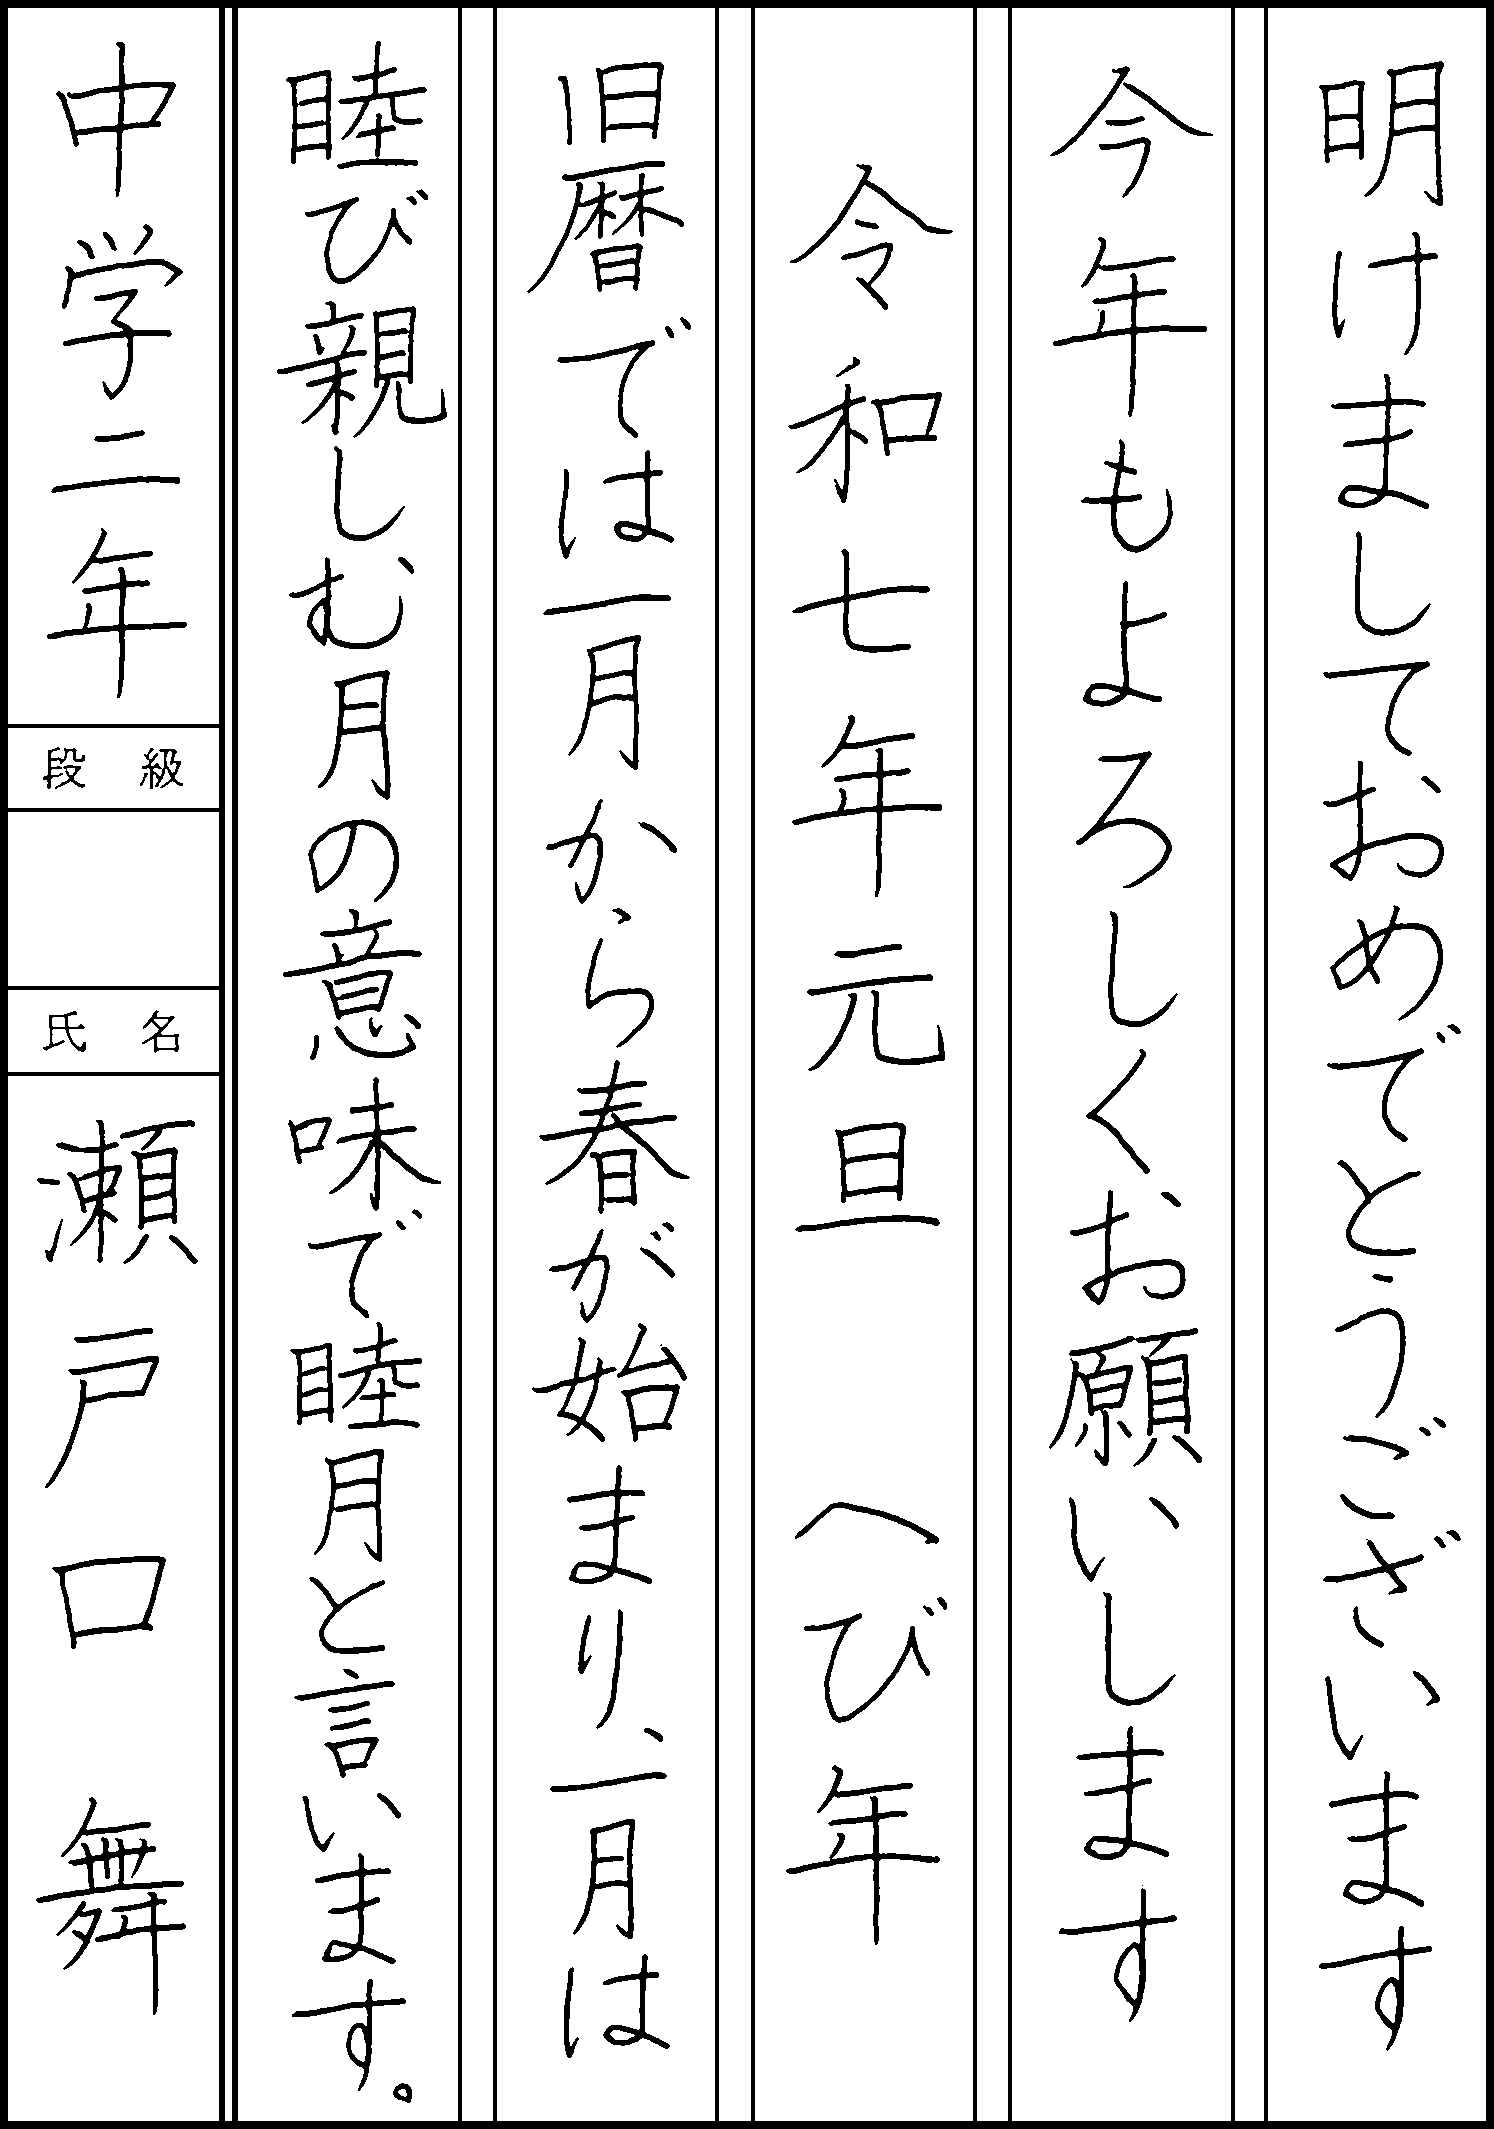 明けましておめでとうございます
今年もよろしくお願いします
令和七年元旦　へび年
旧暦では一月から春が始まり、一月は
睦び親しむ月の意味で睦月と言います。
中学二年
段級
氏名
瀬戸口舞